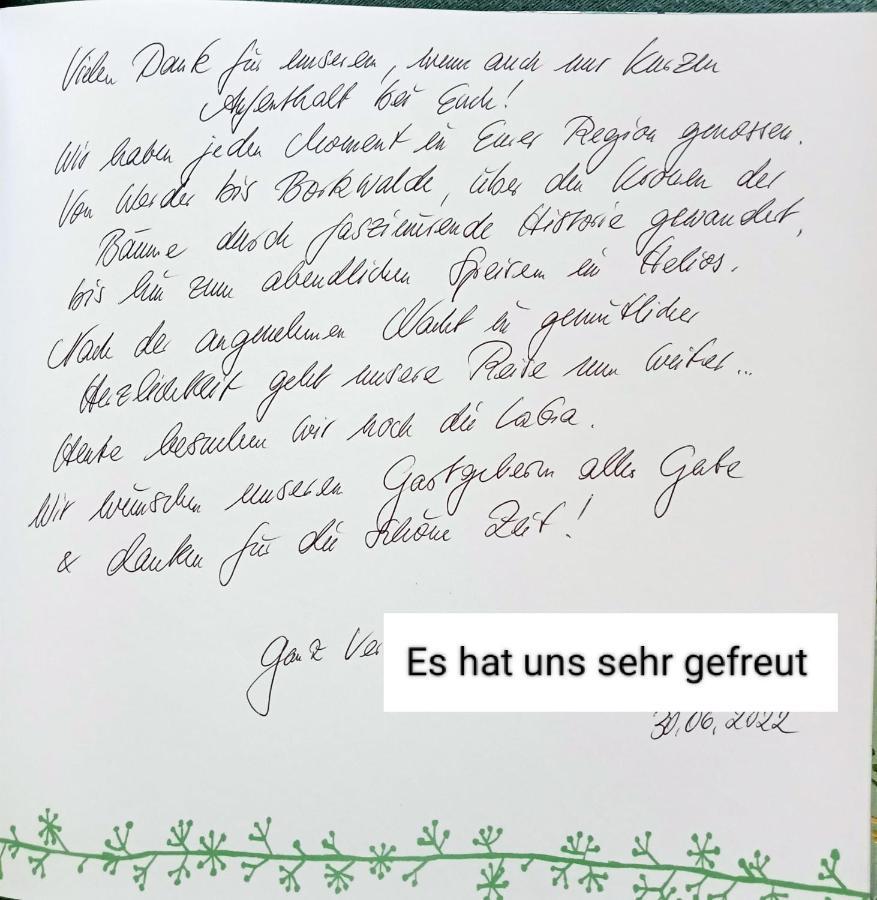 Vielen Dank für unseren, wenn auch nur kurzen
Aufenthalt bei Euch!
Wir haben jeden Moment in Eurer Region genossen.
Von Werder bis Borkwalde, über den Kronen der
Bäume durch faszinierende Historie gewandert,
bis hin zum abendlichen Speisen im Helios.
Nach der angenehmen Nacht in gemütlicher
Herzlichkeit geht unsere Reise nun weiter...
Heute besuchen wir noch die LaGa.
Wir wünschen unseren Gastgebern alles Gute
& danken für die schöne Zeit!
Ganz
Es hat uns sehr gefreut
30.06.2022